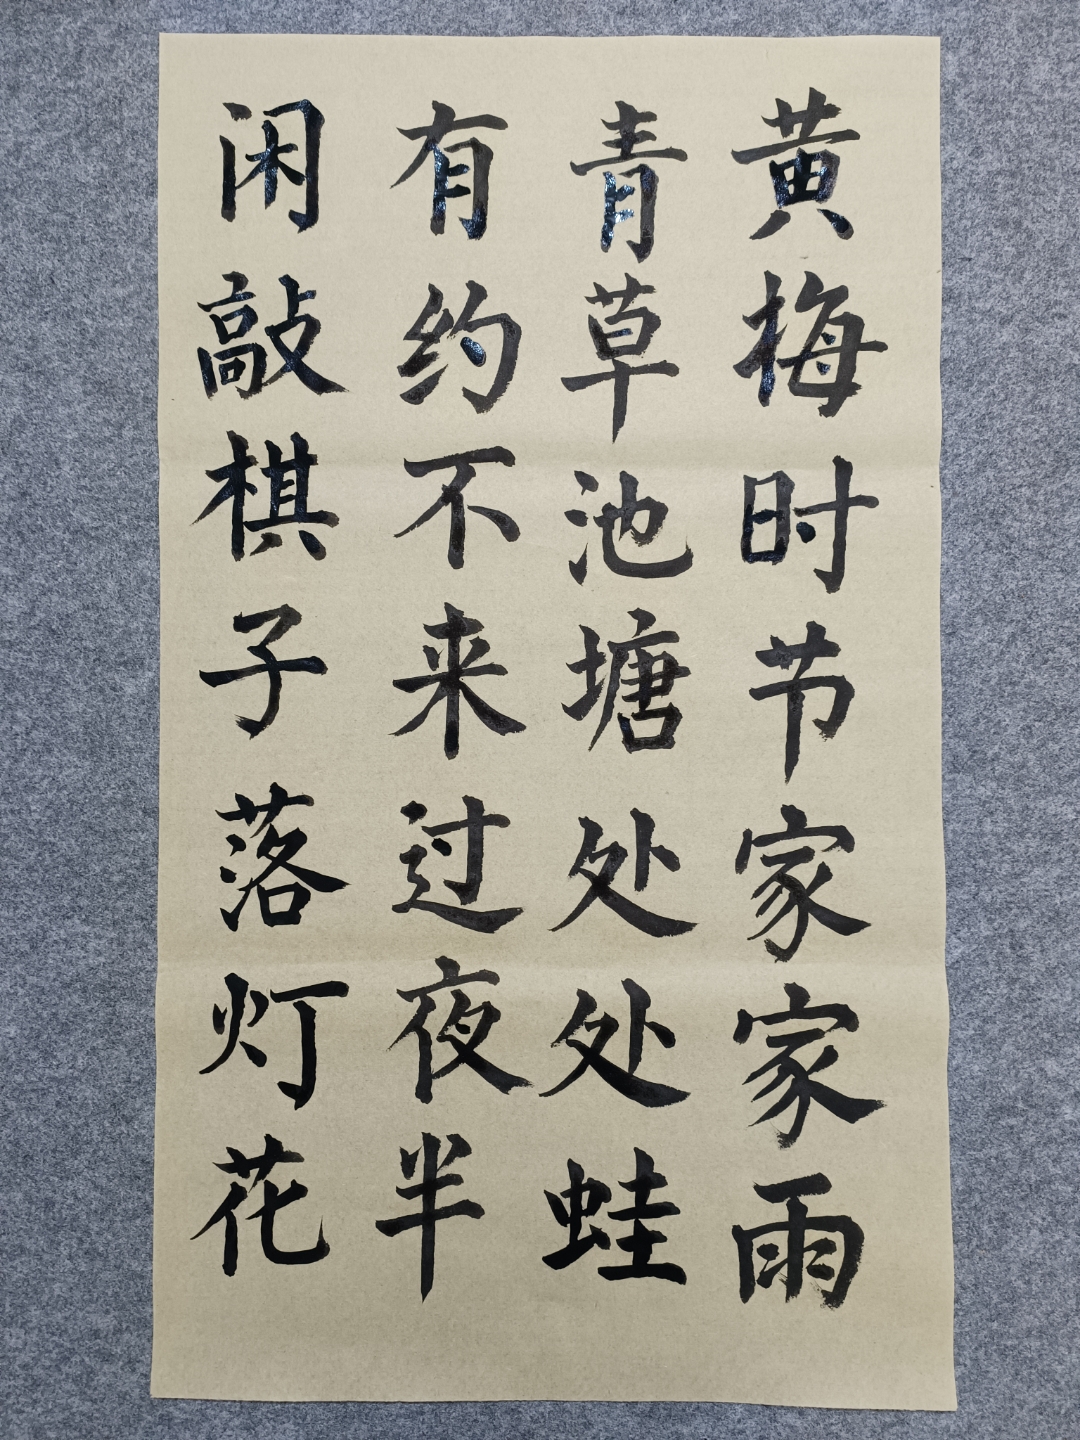 黄梅时节家家雨
青草池塘处处蛙
有约不来过夜半
闲敲棋子落灯花